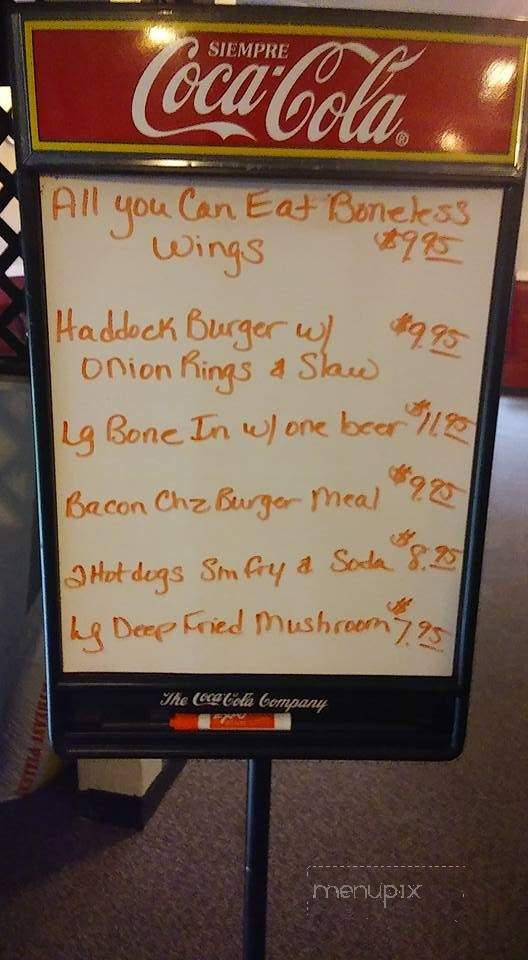 SIEMPRE
Coca-Cola®
All you Can Eat Boneless
Wings $9.95
Haddock Burger w/ $9.95
Onion Rings & Slaw
Lg Bone In w/ one beer $11.95
Bacon Chz Burger Meal $9.95
2 Hotdogs Sm fry & Soda $8.95
Lg Deep Fried Mushroom $7.95
The Coca-Cola Company
EXPO
menupix